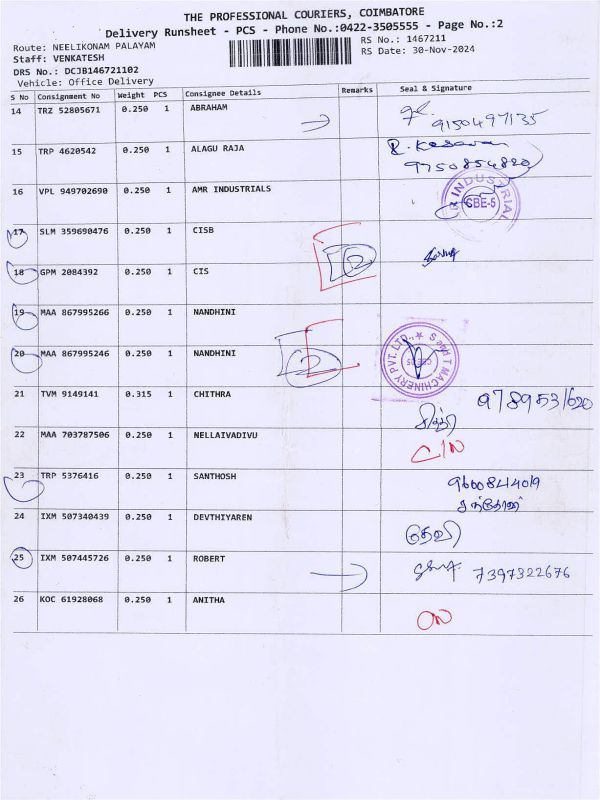 THE PROFESSIONAL COURIERS, COIMBATORE
Delivery Runsheet - PCS - Phone No.:0422-3505555 - Page No.:2
Route: NEELIKONAM PALAYAM
RS No.: 1467211
Staff: VENKATESH
RS Date: 30-Nov-2024
DRS No.: DCJB146721102
Vehicle: Office Delivery
S No Consignment No Weight PCS Consignee Details Remarks Seal & Signature
14 TRZ 52805671 0.250 1 ABRAHAM
9150497135
15 TRP 4620542 0.250 1 ALAGU RAJA
R. Kesavan
9750854820
16 VPL 949702690 0.250 1 AMR INDUSTRIALS
CBE-5
17 SLM 359690476 0.250 1 CISB
2
18 GPM 2084392 0.250 1 CIS
19 MAA 867995266 0.250 1 NANDHINI
20 MAA 867995246 0.250 1 NANDHINI
2
MACHINERY PVT. LTD.,
21 TVM 9149141 0.315 1 CHITHRA
9789531620
சித்ரா
22 MAA 703787506 0.250 1 NELLAIVADIVU
23 TRP 5376416 0.250 1 SANTHOSH
9600844019
சந்தோஷ்
24 IXM 507340439 0.250 1 DEVTHIYAREN
தேவி
25 IXM 507445726 0.250 1 ROBERT
7397322676
26 KOC 61928068 0.250 1 ANITHA